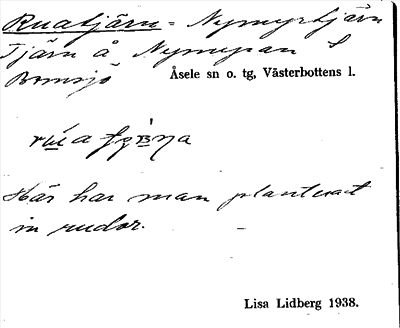 Ruatjärn = Nymyrtjärn
Tjärn å Nymyran S
Bomsjö
Åsele sn o. tg, Västerbottens l.
Här har man planterat
in rudor.
Lisa Lidberg 1938.